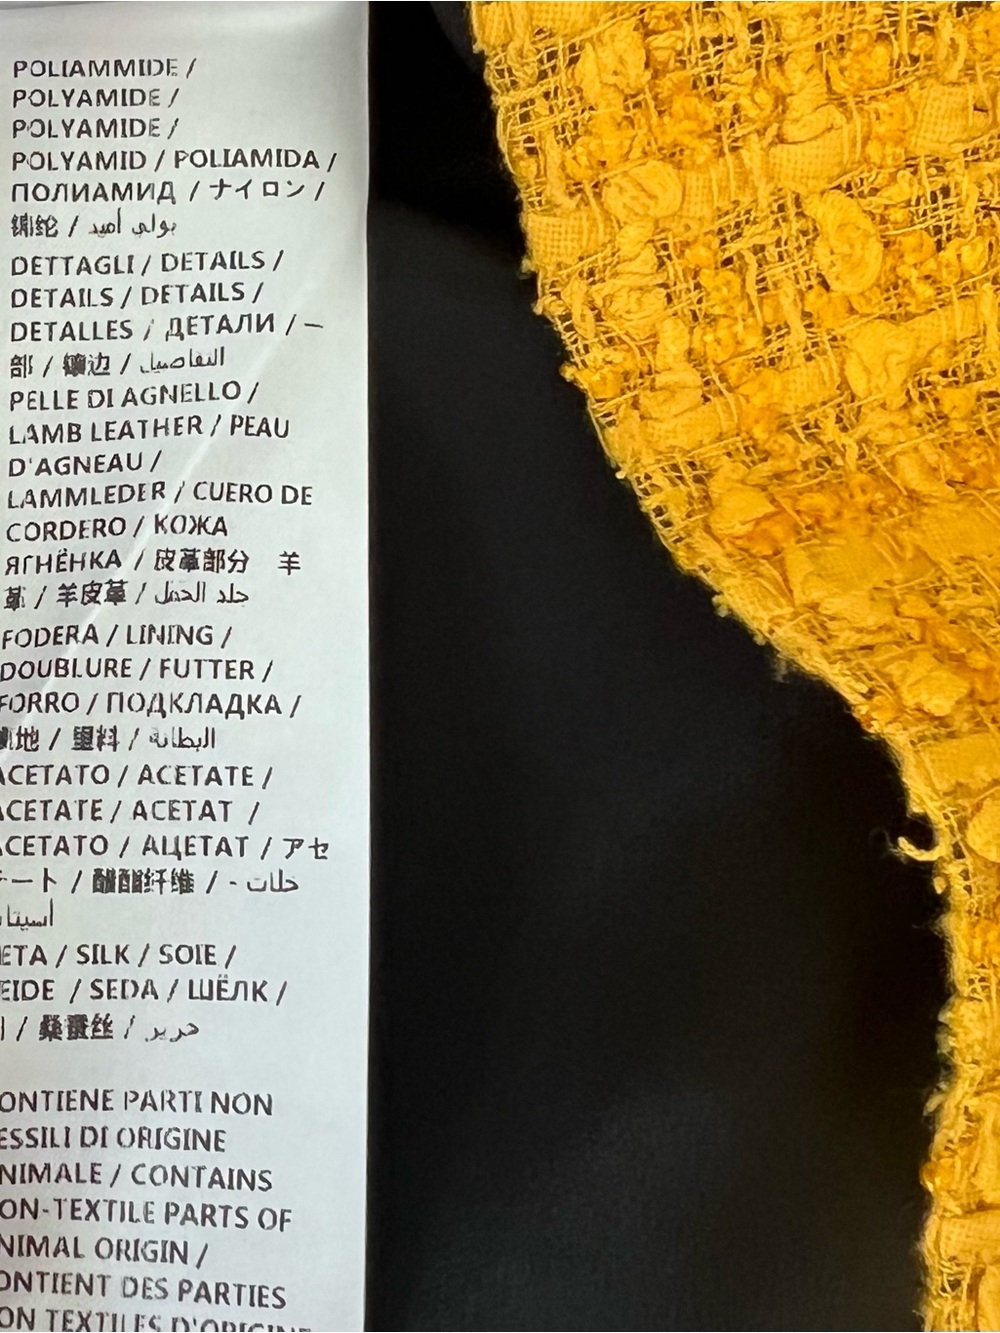 POLIAMMIDE /
POLYAMIDE /
POLYAMIDE /
POLYAMID / POLIAMIDA /
ПОЛИАМИД / ナイロン /
锦纶 / بولي أميد
DETTAGLI / DETAILS /
DETAILS / DETAILS /
DETALLES / ДЕТАЛИ / 一
部 / 镶边 / التفاصيل
PELLE DI AGNELLO /
LAMB LEATHER / PEAU
D'AGNEAU /
LAMMLEDER / CUERO DE
CORDERO / КОЖА
ЯГНЁНКА / 皮革部分 羊
革 / 羊皮革 / جلد الحمل
FODERA / LINING /
DOUBLURE / FUTTER /
FORRO / ПОДКЛАДКА /
地 / 里料 / البطانة
ACETATO / ACETATE /
ACETATE / ACETAT /
ACETATO / АЦЕТАТ / アセ
テート / 醋酯纤维 / - خلات
أسيتا
ETA / SILK / SOIE /
EIDE / SEDA / ШЁЛК /
/ 桑蚕丝 / حرير
ONTIENE PARTI NON
ESSILI DI ORIGINE
NIMALE / CONTAINS
ON-TEXTILE PARTS OF
NIMAL ORIGIN /
ONTIENT DES PARTIES
ON TEXTILES D'ORIGINE